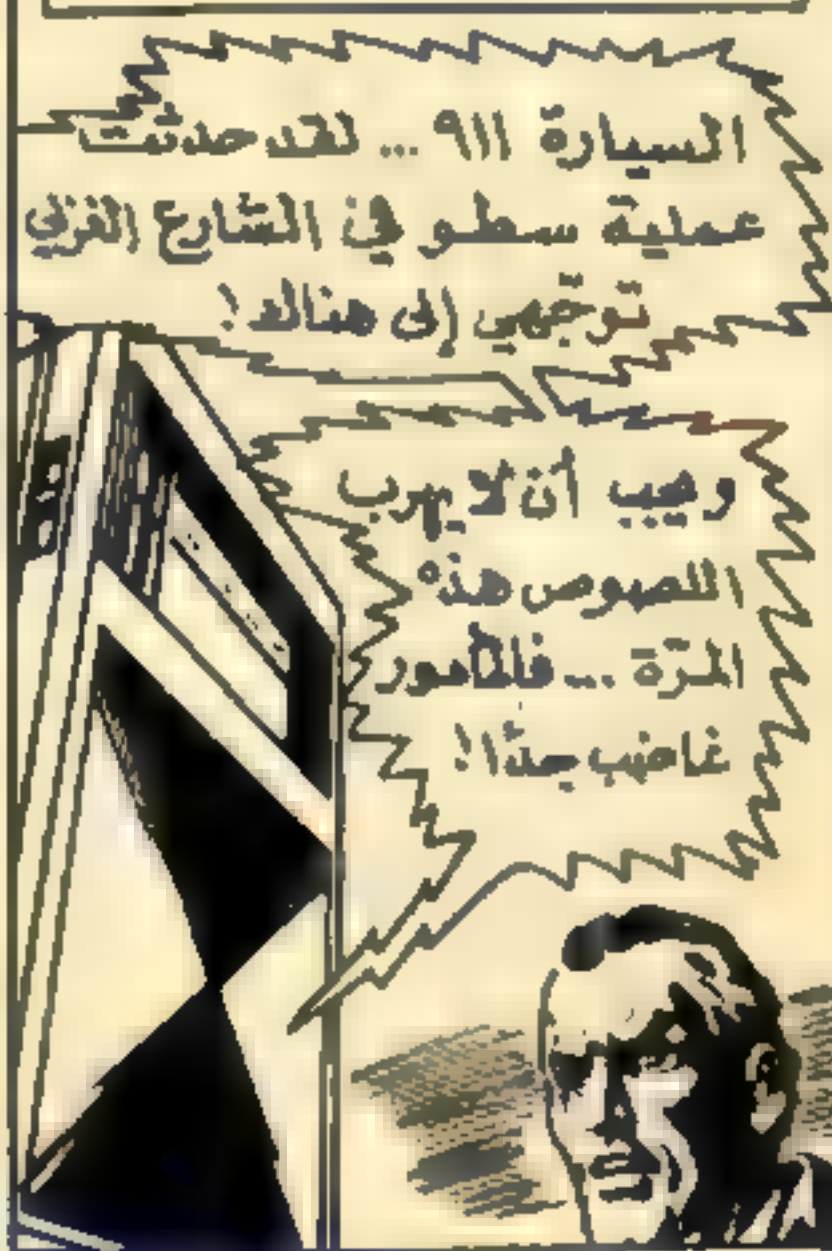 السيارة ٩١١ ... لقد حدثت
عملية سطو في الشارع الغربي
توجّهي إلى هناك!
ويجب أن لا يهرب
اللصوص هذه
المرّة ... فالمأمور
غاضب جدًا!